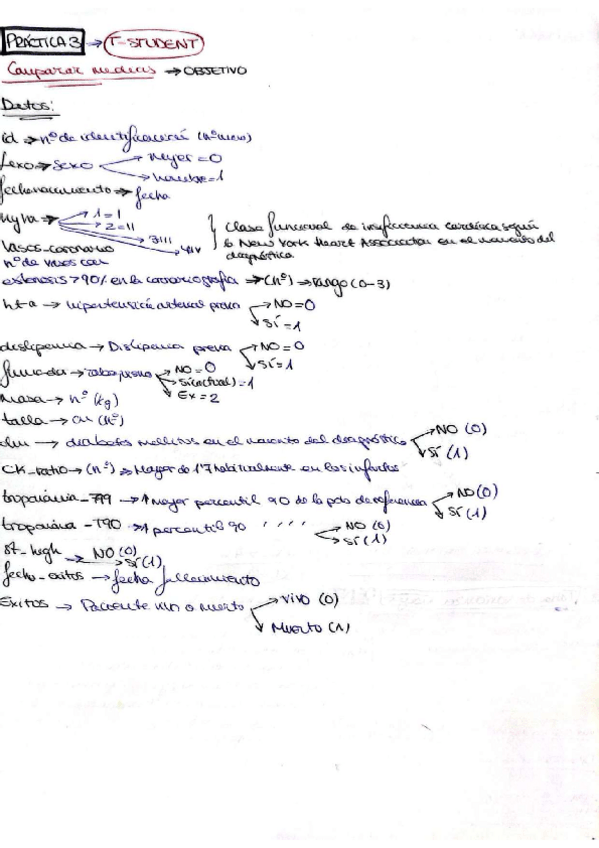 PRÁCTICA 3 → T-STUDENT
Comparar medias → OBJETIVO
Datos:
id → nº de identificación (número)
Sexo → sexo → mujer = 0
→ hombre = 1
fechanacimiento → fecha
nyha → 1 = I
→ 2 = II
→ 3 III
→ 4 IV
} Clase funcional de insuficiencia cardíaca según
la New York Heart Association en el momento del
diagnóstico.
Vasos_coronarios
nº de vasos con
estenosis > 90% en la coronariografía → (nº) → rango (0-3)
hta → hipertensión arterial previa → NO = 0
→ SÍ = 1
dislipemia → Dislipemia previa → NO = 0
→ SÍ = 1
fumador → tabaquismo → NO = 0
→ Sí (actual) = 1
→ Ex = 2
masa → nº (kg)
talla → cm (nº)
dm → diabetes mellitus en el momento del diagnóstico → NO (0)
→ SÍ (1)
CK_ratio → (nº) → Mayor de 1'7 habitualmente en los infartos
troponina_T99 → ↑ Mayor percentil 90 de la pob de referencia → NO (0)
→ SÍ (1)
troponina - T90 → ↑ percentil 90 ' ' ' ' → NO (0)
→ SÍ (1)
st_high → NO (0)
→ SÍ (1)
fecha_exitus → fecha fallecimiento
Exitus → Paciente vivo o muerto → VIVO (0)
→ MUERTO (1)